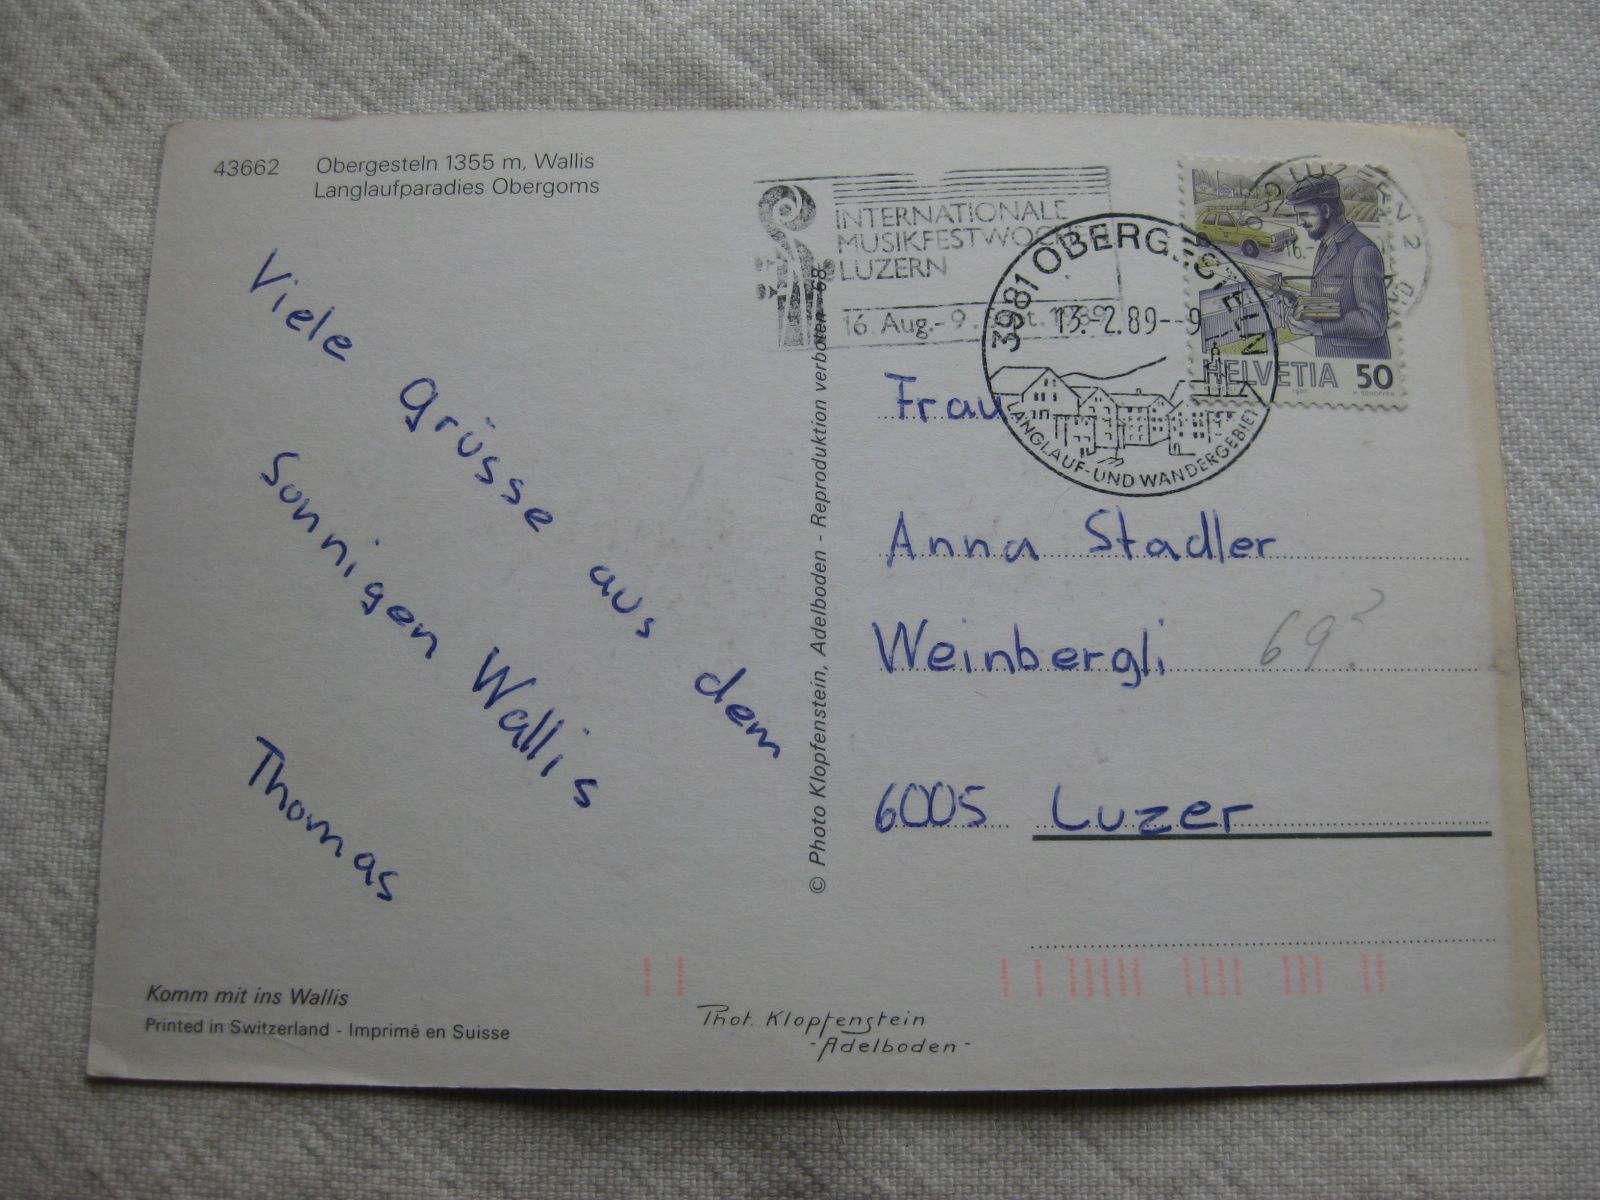 43662 Obergesteln 1355 m, Wallis
Langlaufparadies Obergoms
Viele Grüsse aus dem
Sonnigen Wallis
Thomas
Komm mit ins Wallis
Printed in Switzerland - Imprimé en Suisse
Phot. Klopfenstein
- Adelboden -
© Photo Klopfenstein, Adelboden - Reproduktion verboten
INTERNATIONALE
MUSIKFESTWOCHEN
LUZERN
16. Aug. - 9. Sept. 1989
3981 OBERGESTELN
13.-2.89--9
LANGLAUF- UND WANDERGEBIET
LUZERN 2
HELVETIA 50
Frau
Anna Stadler
Weinbergli 69?
6005 Luzer